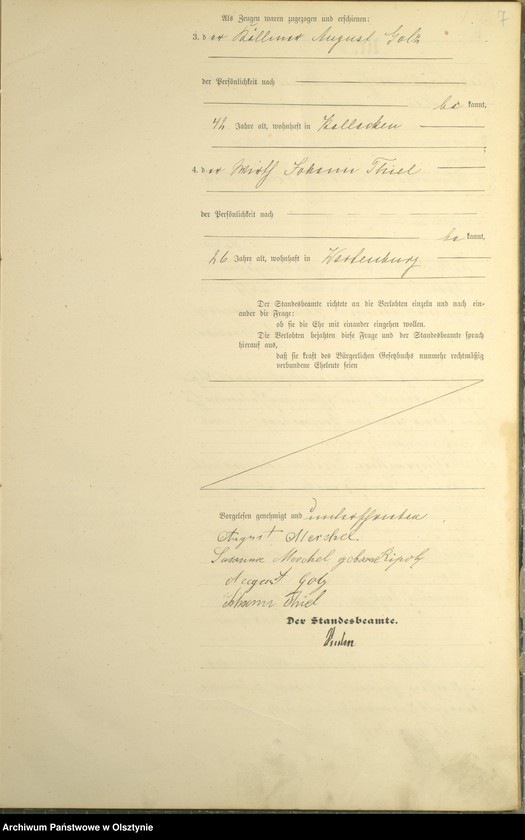 7
Als Zeugen waren zugezogen und erschienen:
3. der August Golz
der Persönlichkeit nach
bekannt,
42 Jahre alt, wohnhaft in Kallacken
4. der Wirth Johann Thiel
der Persönlichkeit nach
bekannt,
26 Jahre alt, wohnhaft in Wartenburg
Der Standesbeamte richtete an die Verlobten einzeln und nach ein-
ander die Frage:
ob sie die Ehe mit einander eingehen wollen.
Die Verlobten bejahten diese Frage und der Standesbeamte sprach
hierauf aus,
daß sie kraft des Bürgerlichen Gesetzbuchs nunmehr rechtmäßig
verbundene Eheleute seien
Vorgelesen genehmigt und unterschrieben
August Merschel.
Susanna Merschel geborene
August Golz
Johann Thiel
Der Standesbeamte.
Archiwum Państwowe w Olsztynie